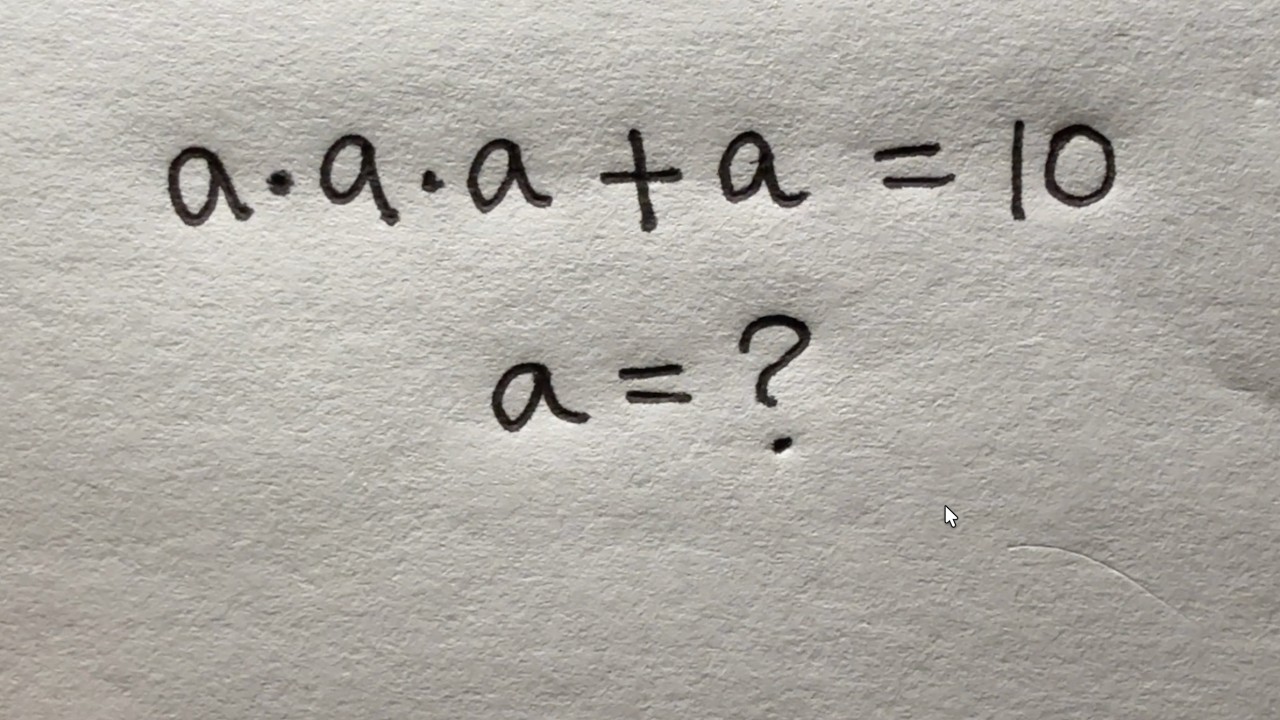 a·a·a + a = 10
a = ?